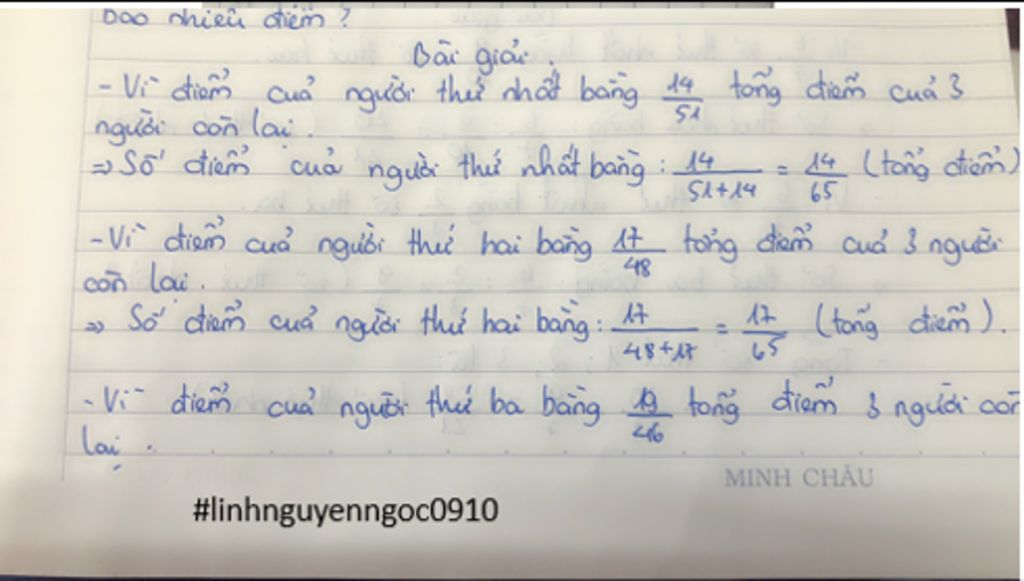 bao nhiêu điểm ?
Bài giải.
- Vì điểm của người thứ nhất bằng 14/51 tổng điểm của 3
người còn lại.
⇒ Số điểm của người thứ nhất bằng : 14/(51+14) = 14/65 (tổng điểm)
- Vì điểm của người thứ hai bằng 17/48 tổng điểm của 3 người
còn lại.
⇒ Số điểm của người thứ hai bằng : 17/(48+17) = 17/65 (tổng điểm).
- Vì điểm của người thứ ba bằng 19/46 tổng điểm 3 người còn
lại.
MINH CHÂU
#linhnguyenngoc0910